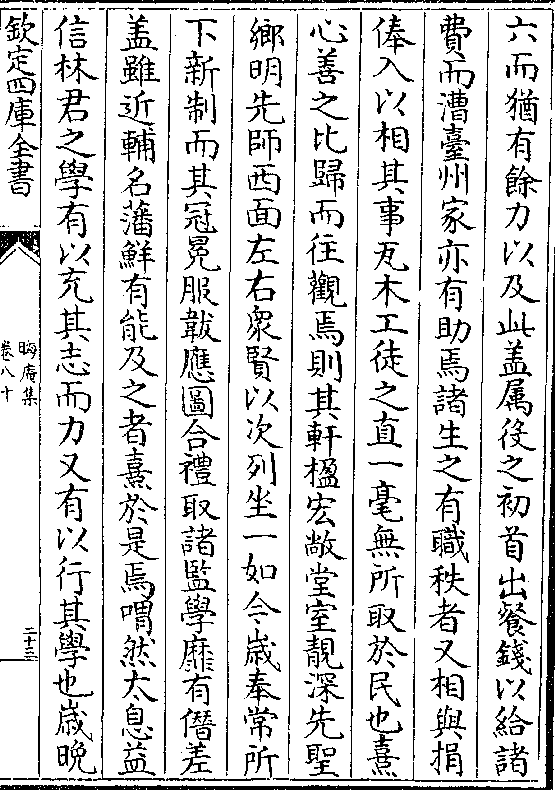 六而猶有餘力以及此盖属役之初首出餐錢以給諸
費而漕臺州家亦有助焉諸生之有職秩者又相與捐
俸入以相其事瓦木工徒之直一毫無所取於民也熹
心善之比歸而往觀焉則其軒楹宏敞堂室靚深先聖
鄉明先師西面左右衆賢以次列坐一如今歲奉常所
下新制而其冠冕服韍應圖合禮取諸監學靡有僭差
盖雖近輔名藩鮮有能及之者熹於是焉喟然太息益
信林君之學有以充其志而力又有以行其學也歲晩
欽定四庫全書
晦庵集
卷八十
二十三